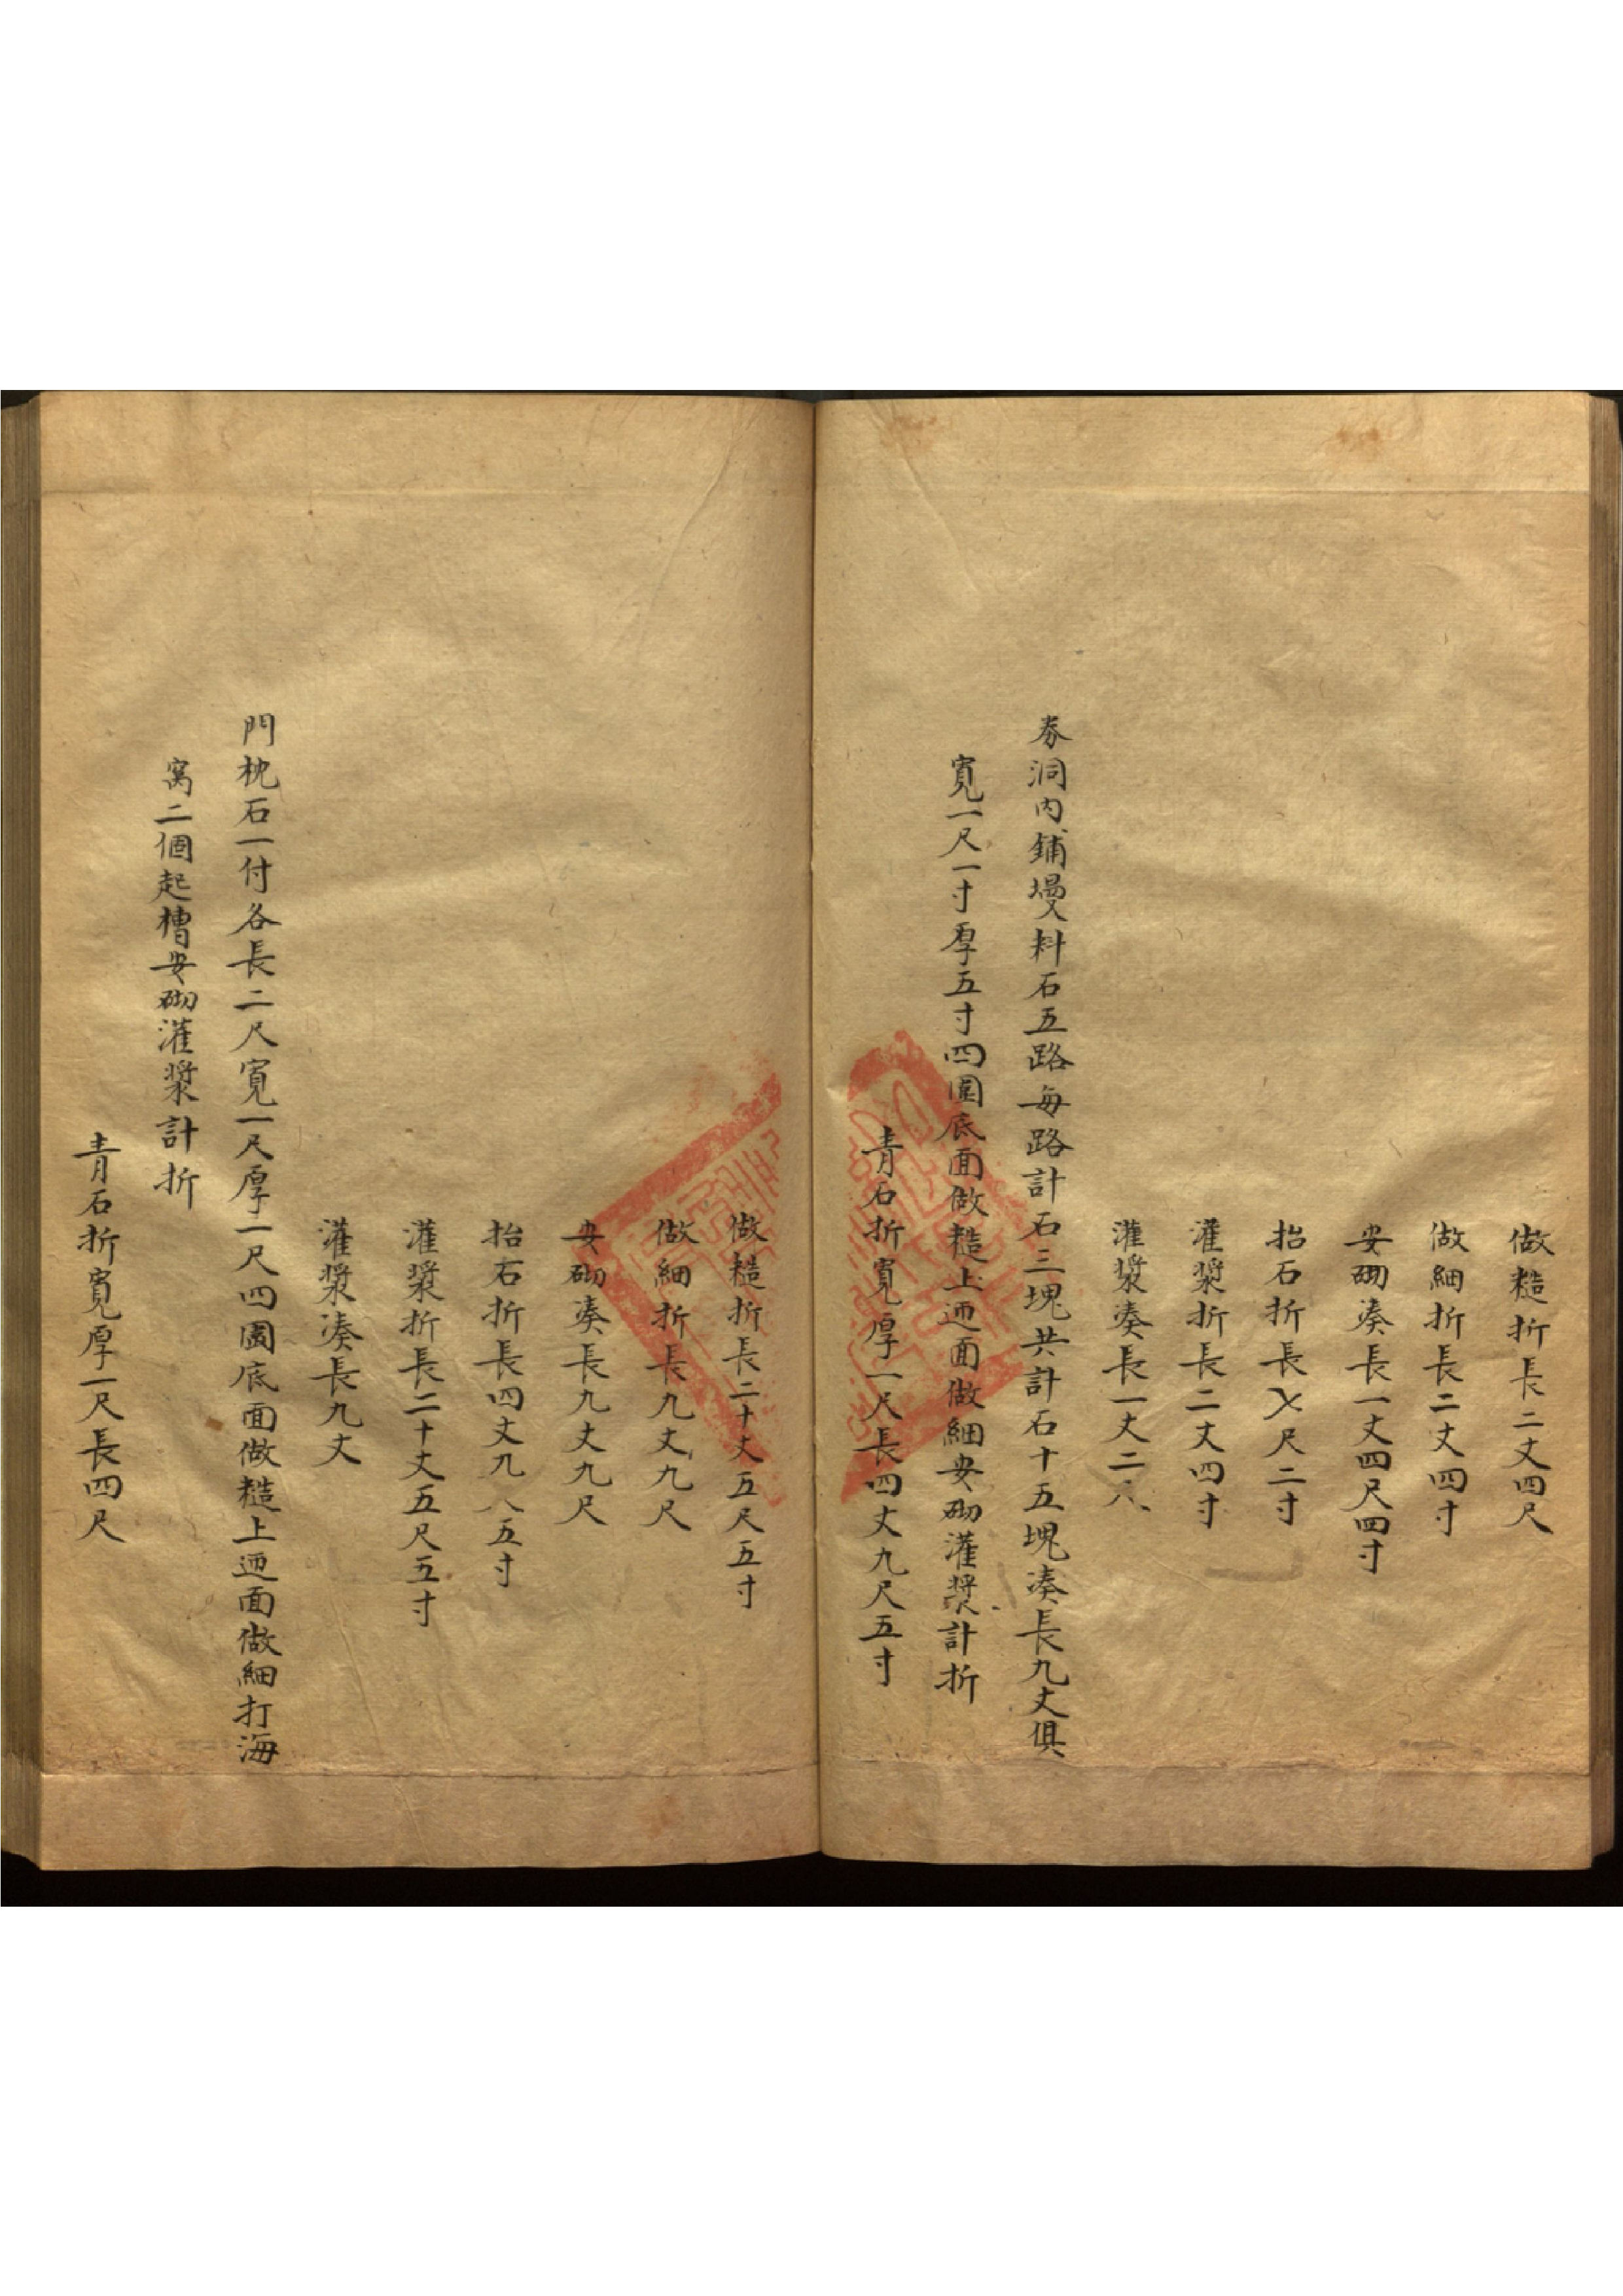 做糙折長二丈四尺
做細折長二丈四寸
安砌凑長一丈四尺四寸
抬石折長七尺二寸
灌漿折長二丈四寸
灌漿凑長一丈二尺
券洞内鋪墁料石五路每路計石三塊共計石十五塊凑長九丈俱
寬一尺一寸厚五寸四圍底面做糙上迎面做細安砌灌漿計折
青石折寬厚一尺長四丈九尺五寸
做糙折長二十丈五尺五寸
做細折長九丈九尺
安砌凑長九丈九尺
抬石折長四丈九尺五寸
灌漿折長二十丈五尺五寸
灌漿凑長九丈
門枕石一付各長二尺寬一尺厚一尺四圍底面做糙上迎面做細打海
窝二個起槽安砌灌漿計折
青石折寬厚一尺長四尺